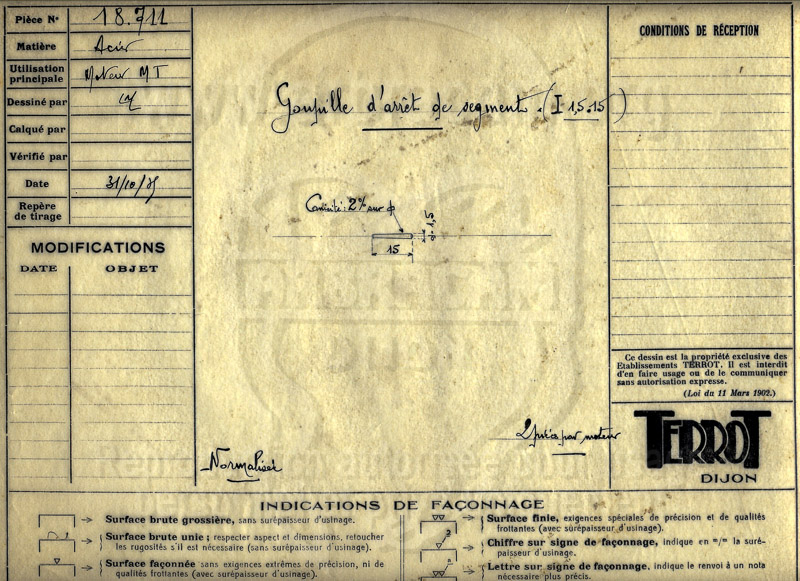 Pièce N° 18.711
Matière Acier
Utilisation principale Moteur MT
Dessiné par
Calqué par
Vérifié par
Date 31/10/
Repère de tirage
MODIFICATIONS
DATE OBJET
Goupille d'arrêt de segment. (I 1,5.15)
Conicité: 2% sur ϕ
d=1,5
15
Normalisée
2 pièces par moteur
CONDITIONS DE RÉCEPTION
Ce dessin est la propriété exclusive des
Etablissements TERROT. Il est interdit
d'en faire usage ou de le communiquer
sans autorisation expresse.
(Loi du 11 Mars 1902.)
TERROT
DIJON
INDICATIONS DE FAÇONNAGE
Surface brute grossière, sans surépaisseur d'usinage.
Surface brute unie; respecter aspect et dimensions, retoucher
les rugosités s'il est nécessaire (sans surépaisseur d'usinage).
Surface façonnée sans exigences extrêmes de précision, ni de
qualités frottantes (avec surépaisseur d'usinage).
Surface finie, exigences spéciales de précision et de qualités
frottantes (avec surépaisseur d'usinage).
Chiffre sur signe de façonnage, indique en m/m la suré-
paisseur d'usinage.
Lettre sur signe de façonnage, indique le renvoi à un nota
nécessaire plus précis.